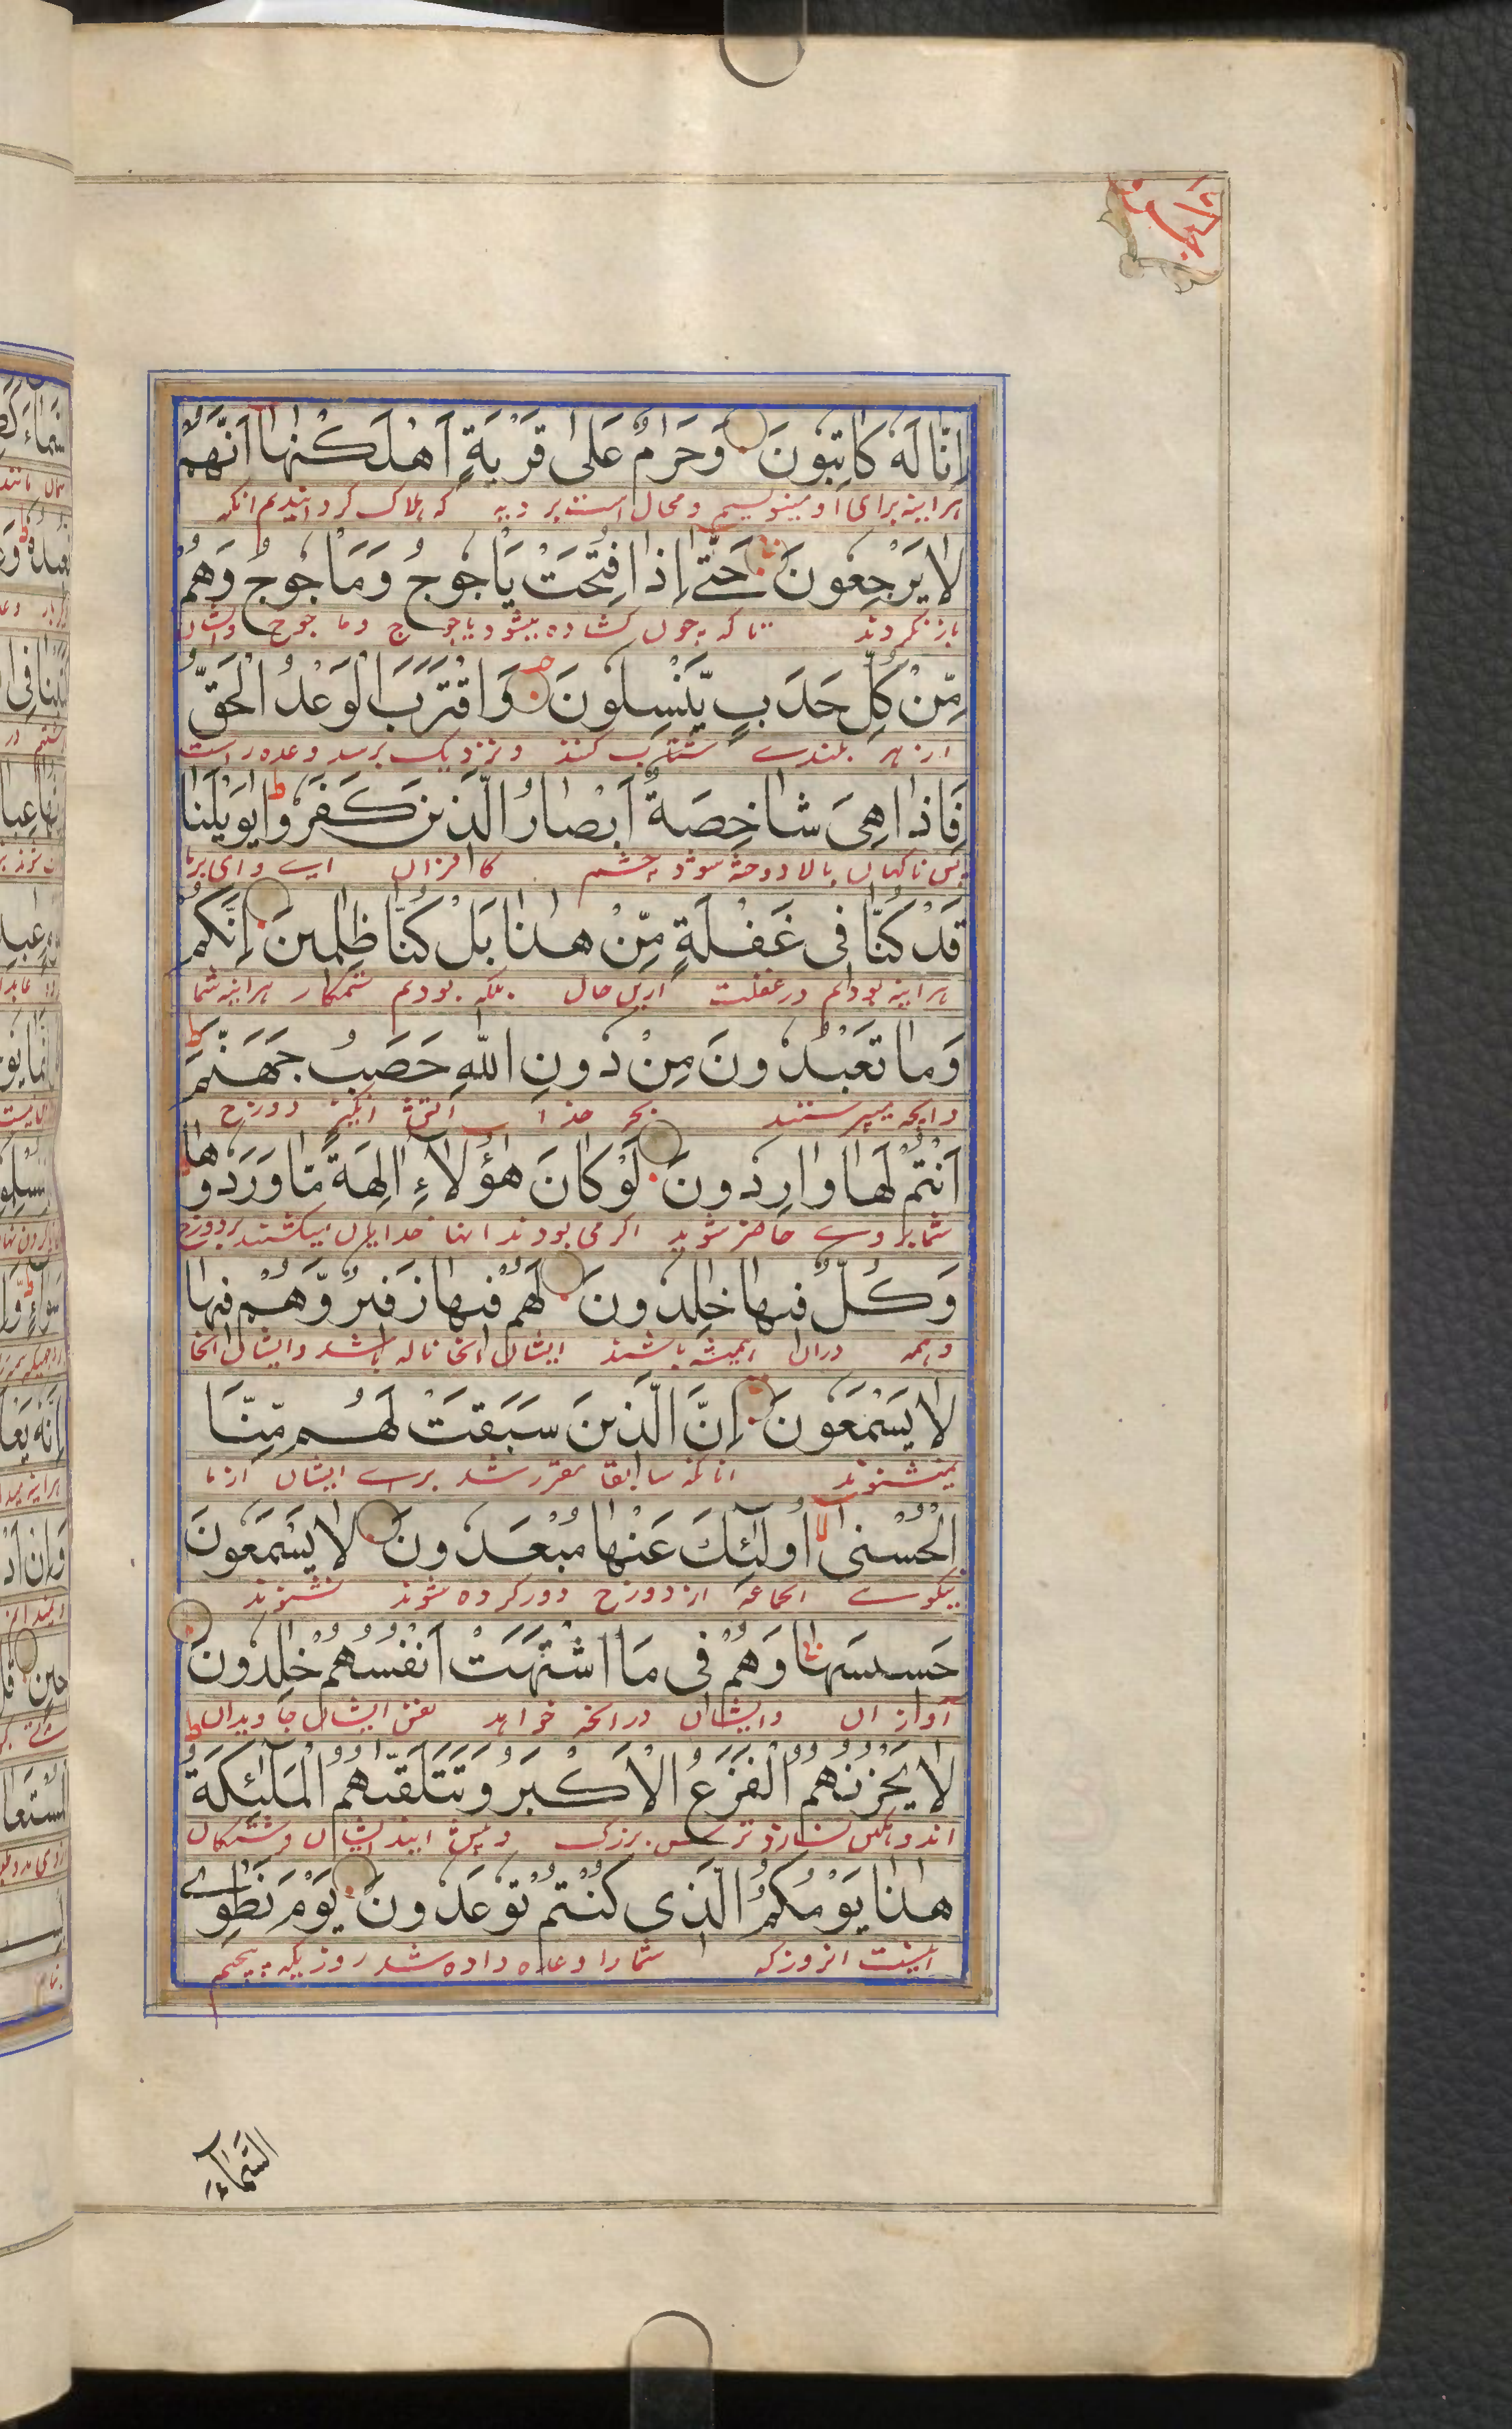 اِنَّا لَهٗ كَاتِبُونَ وَحَرٰمٌ عَلٰى قَرْيَةٍ اَهْلَكْنٰهَا اَنَّهُمْ
هرآینه برای او مینویسیم و محال است بر دیه که هلاک کردانیدیم انکه
لَا يَرْجِعُونَ حَتّٰے اِذَا فُتِحَتْ يَاْجُوجُ وَمَاْجُوجُ وَهُمْ
باز نکردند تا که چون کشاده میشود یاجوج و ماجوج وایشان
مِّنْ كُلِّ حَدَبٍ يَّنْسِلُونَ وَاقْتَرَبَ الْوَعْدُ الْحَقُّ
از هر بلندے شتاب کنند و نزدیک برسد وعده راست
فَاِذَا هِىَ شَاخِصَةٌ اَبْصَارُ الَّذِينَ كَفَرُوا يٰوَيْلَنَا
پس ناکهان بالا دوخته شود چشم کافران اے وای برما
قَدْ كُنَّا فِى غَفْلَةٍ مِّنْ هٰذَا بَلْ كُنَّا ظٰلِمِينَ اِنَّكُمْ
هرآینه بودیم در غفلت ازین حال بلکه بودیم ستمکار هرآینه شما
وَمَا تَعْبُدُونَ مِنْ دُونِ اللّٰهِ حَصَبُ جَهَنَّمَ
وانچه میپرستند بجز خدا آتش انکیز دوزخ
اَنْتُمْ لَهَا وَارِدُونَ لَوْ كَانَ هٰؤُلَاءِ اٰلِهَةً مَّا وَرَدُوهَا
شما بر وے حاضر شوید اکر می بودند انها خدایان میکشتند بر دوزخ
وَكُلٌّ فِيهَا خٰلِدُونَ لَهُمْ فِيهَا زَفِيرٌ وَّهُمْ فِيهَا
وهمه دران همیشه باشند ایشان را انجا ناله باشد وایشان انجا
لَا يَسْمَعُونَ اِنَّ الَّذِينَ سَبَقَتْ لَهُمْ مِّنَّا
نمیشنوند انانکه سابقا مقرر شد براے ایشان از ما
الْحُسْنٰى اُولٰٓئِكَ عَنْهَا مُبْعَدُونَ لَا يَسْمَعُونَ
نیکوے انجماعه از دوزخ دور کرده شوند نشنوند
حَسِيسَهَا وَهُمْ فِى مَا اشْتَهَتْ اَنْفُسُهُمْ خٰلِدُونَ
آواز ان وایشان درانچه خواهد نفس ایشان جاویدان
لَا يَحْزُنُهُمُ الْفَزَعُ الْاَكْبَرُ وَتَتَلَقّٰهُمُ الْمَلٰٓئِكَةُ
اندوهکین نسازد ترس بزرک و پیش ایند ایشان فرشتکان
هٰذَا يَوْمُكُمُ الَّذِى كُنْتُمْ تُوعَدُونَ يَوْمَ نَطْوِے
اینست انروز که شما را وعده داده شد روزیکه پیچیم
السَّمَآءَ